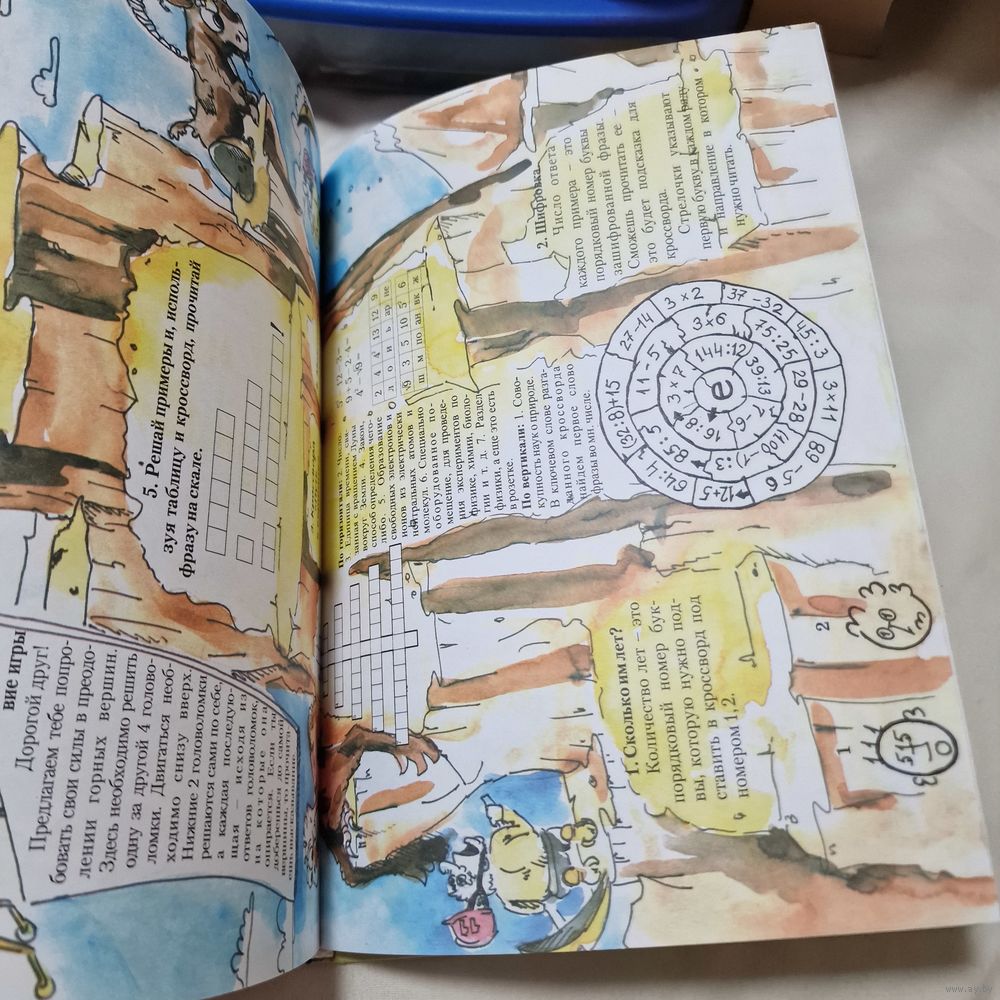 вие игры
Дорогой друг!
Предлагаем тебе попро-
бовать свои силы в преодо-
лении горных вершин.
Здесь необходимо решить
одну за другой 4 голово-
ломки. Двигаться необ-
ходимо снизу вверх.
Нижние 2 головоломки
решаются сами по себе,
а каждая последую-
щая – исходя из
ответов головоломок,
на которые она
опирается. Если ты
доберешься до самой
5. Решай примеры и, исполь-
зуя таблицу и кроссворд, прочитай
фразу на скале.
По горизонтали:
3. Единица времени, свя-
занная с вращением Луны
вокруг Земли. 4. Закон,
способ определения чего-
либо. 5. Образование
свободных электронов и
ионов из электрически
нейтральных атомов и
молекул. 6. Специально
оборудованное по-
мещение, для проведе-
ния экспериментов по
физике, химии, биоло-
гии и т. д. 7. Раздел
физики, а еще это есть
в розетке.
По вертикали: 1. Сово-
купность наук о природе.
В ключевом слове разга-
данного кроссворда
найдем первое слово
фразы во мн. числе.
2 4 4 13 12 9
л о и ь ар не
√9 3 5 10 5 6
ш м по ан вк ж
2. Шифровка.
Число ответа
каждого примера – это
порядковый номер буквы
зашифрованной фразы.
Сможешь прочитать ее –
это будет подсказка для
кроссворда.
Стрелочки указывают
первую букву в каждом ряду
и направление в котором
нужно читать.
64:4
(30:8)+15
27-14
3×2
37-32
45:3
3×11
89-56
12-5
85:5
11-5
3×6
75:25
29-28
(406-1):3
16:8
3×7
144:12
39:13
е
1. Сколько им лет?
Количество лет – это
порядковый номер бук-
вы, которую нужно под-
ставить в кроссворд под
номером 1, 2.
1
2
11
www.ay.by